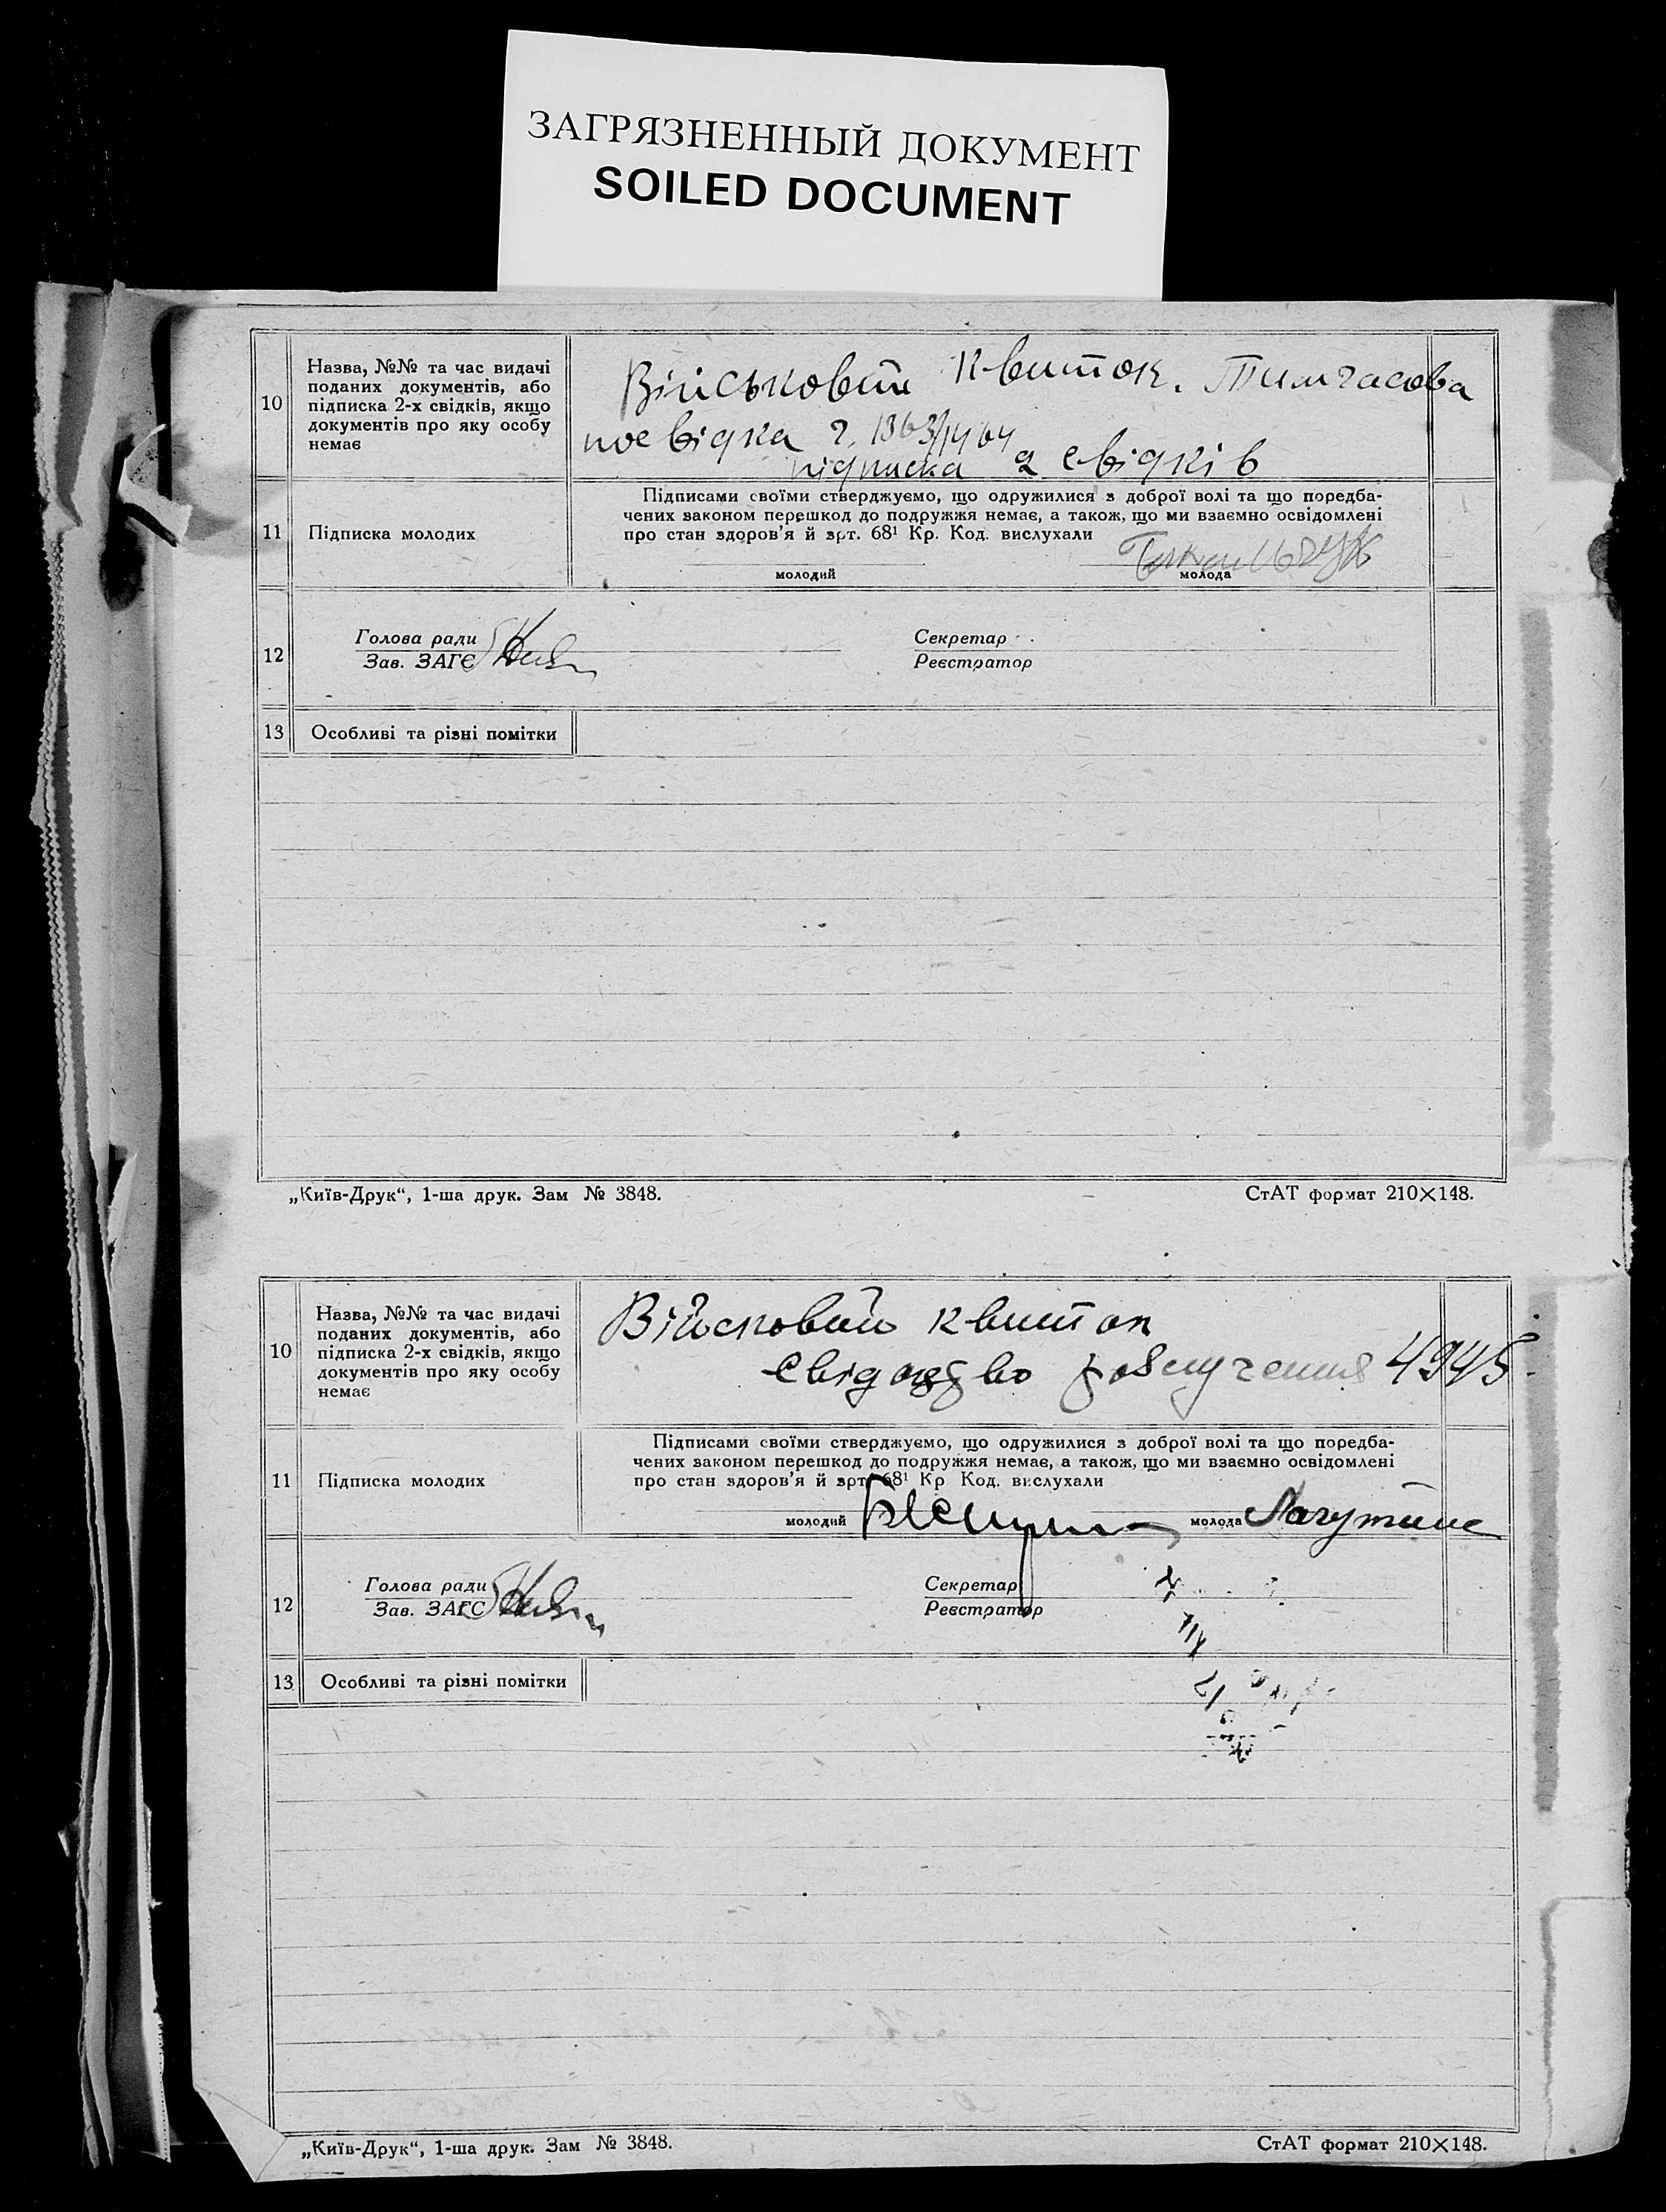 ЗАГРЯЗНЕННЫЙ ДОКУМЕНТ
SOILED DOCUMENT
10
Назва, №№ та час видачі
поданих документів, або
підписка 2-х свідків, якщо
документів про яку особу
немає
Військовий квиток. Тимчасова
посвідка ч. 1363/1464
підписка 2 свідків
11
Підписка молодих
Підписами своїми стверджуємо, що одружилися з доброї волі та що поредба-
чених законом перешкод до подружжя немає, а також, що ми взаємно освідомлені
про стан здоров'я й арт. 68¹ Кр. Код. вислухали
молодий
молода
12
Голова ради
Зав. ЗАГС
Секретар
Реєстратор
13
Особливі та різні помітки
„Київ-Друк“, 1-ша друк. Зам № 3848.
СтАТ формат 210×148.
10
Назва, №№ та час видачі
поданих документів, або
підписка 2-х свідків, якщо
документів про яку особу
немає
Війсковий квиток
свідоцтво 4945
11
Підписка молодих
Підписами своїми стверджуємо, що одружилися з доброї волі та що поредба-
чених законом перешкод до подружжя немає, а також, що ми взаємно освідомлені
про стан здоров'я й арт. 68¹ Кр Код. вислухали
молодий
молода
12
Голова ради
Зав. ЗАГС
Секретар
Реєстратор
13
Особливі та різні помітки
„Київ-Друк“, 1-ша друк. Зам № 3848.
СтАТ формат 210×148.